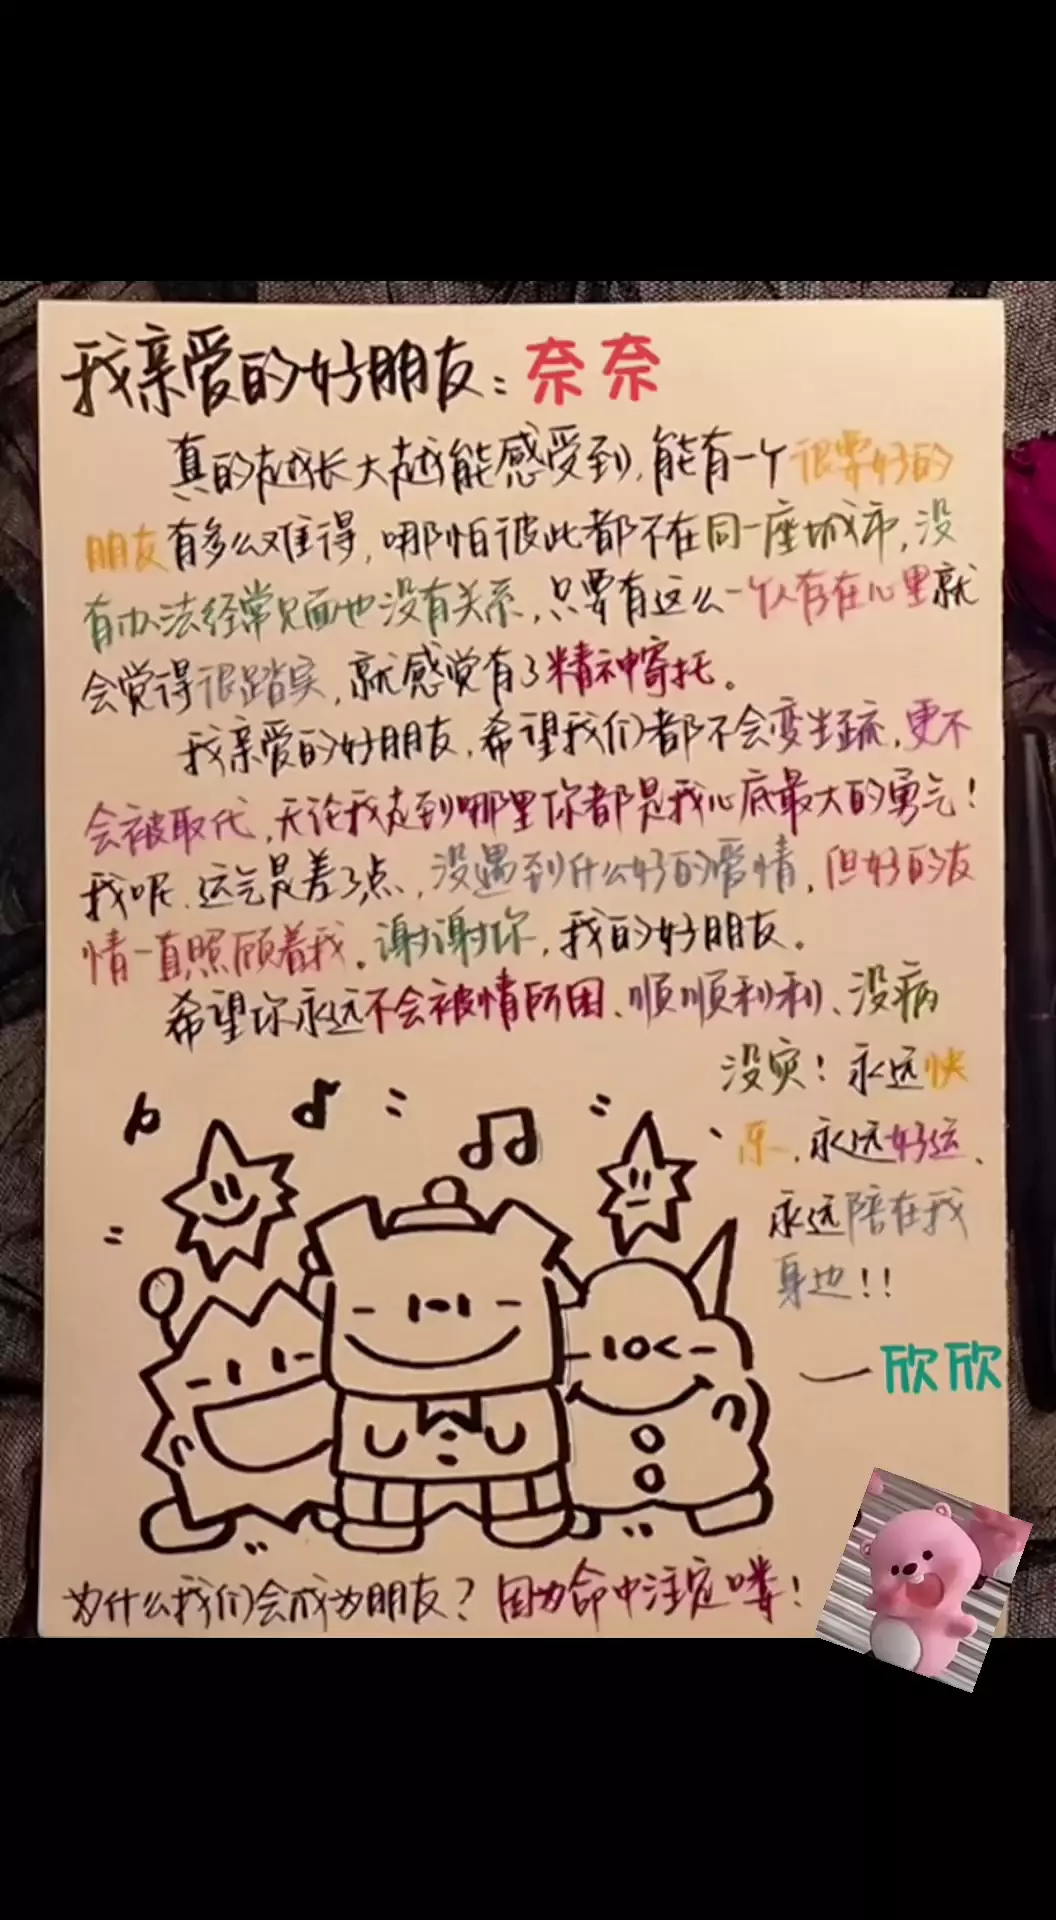 我亲爱的好朋友：奈奈
真的越长大越能感受到，能有一个很要好的
朋友有多么难得，哪怕彼此都不在同一座城市，没
有办法经常见面也没有关系，只要有这么一个人存在心里就
会觉得很踏实，就感觉有了精神寄托。
我亲爱的好朋友，希望我们都不会变生疏，更不
会被取代，无论我走到哪里你都是我心底最大的勇气！
我呢，运气是差了点，没遇到什么好的爱情，但好的友
情一直照顾着我。谢谢你，我的好朋友。
希望你永远不会被情所困、顺顺利利、没病
没灾！永远快
乐，永远好运、
永远陪在我
身边！！
—欣欣
为什么我们会成为朋友？因为命中注定喽！